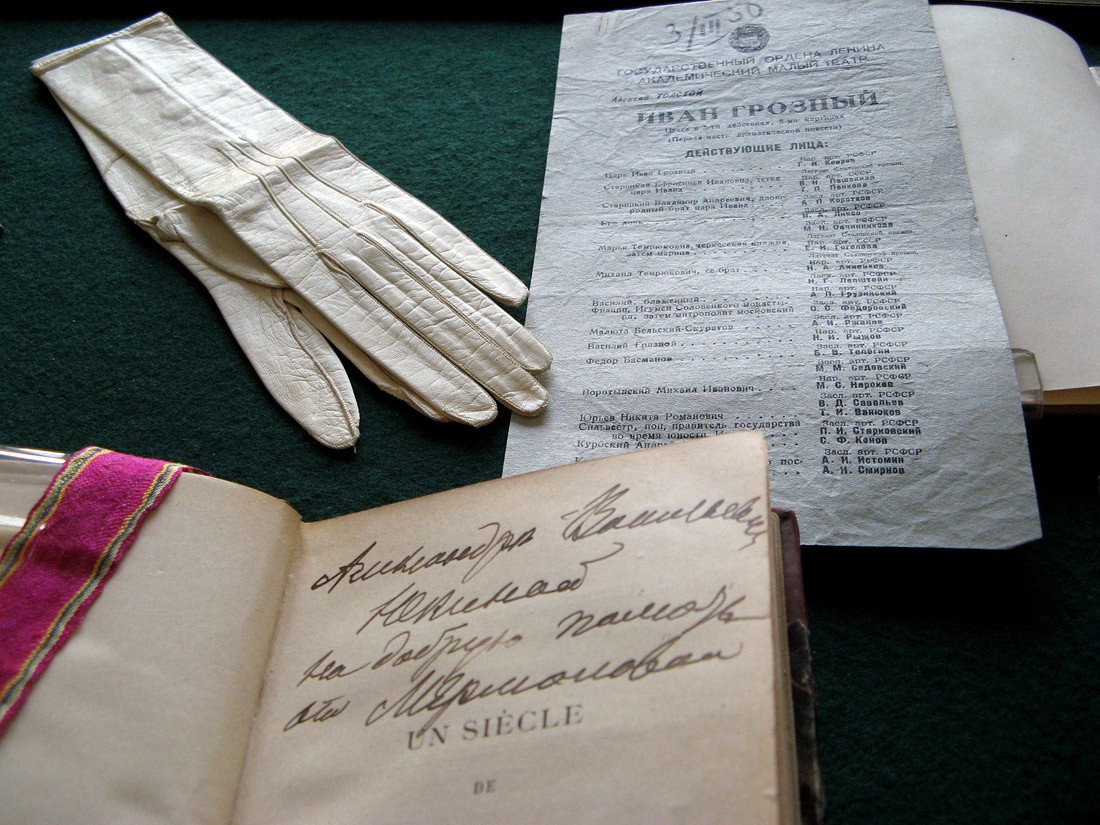 3/III 50
ГОСУДАРСТВЕННЫЙ ОРДЕНА ЛЕНИНА
АКАДЕМИЧЕСКИЙ МАЛЫЙ ТЕАТР
Алексей ТОЛСТОЙ
ИВАН ГРОЗНЫЙ
(Первая часть драматической повести)
ДЕЙСТВУЮЩИЕ ЛИЦА:
Нар. арт. РСФСР
Царь Иван Грозный
Лауреат Сталинской премии,
Нар. арт. СССР
Старицкая Ефросинья Ивановна, тетка царя Ивана
В. Н. Пашенная
Т. П. Панкова
Старицкий Владимир Андреевич, двоюродный брат царя Ивана
А. П. Коротков
Засл. арт. РСФСР
Его дочь
М. Н. Овчинникова
Лауреат Сталинской премии,
Нар. арт. СССР
Марья Темрюковна, черкесская княжна, затем царица
Е. Н. Гоголева
Лауреат Сталинской премии,
Нар. арт. РСФСР
Михаил Темрюкович, ее брат
Н. А. Анненков
Нар. арт. РСФСР
Василий, блаженный
А. П. Грузинский
Филипп, Игумен Соловецкого монастыря, затем митрополит московский
О. О. Федоровский
Засл. арт. РСФСР
А. И. Ржанов
Малюта Бельский-Скуратов
Н. И. Рыжов
Засл. арт. РСФСР
Василий Грязной
Б. В. Телегин
Засл. арт. РСФСР
Федор Басманов
М. М. Садовский
Засл. арт. РСФСР
Воротынский Михаил Иванович
М. С. Нароков
Засл. арт. РСФСР
В. Д. Савельев
Юрьев Никита Романович
Т. И. Ванюков
Засл. арт. РСФСР
Сильвестр, поп, правитель государства во время юности
П. И. Старковский
С. Ф. Конов
Засл. арт. РСФСР
А. И. Истомин
А. И. Смирнов
Александре Васильевне
на добрую память
от МЕрмоловой
UN SIÈCLE
DE